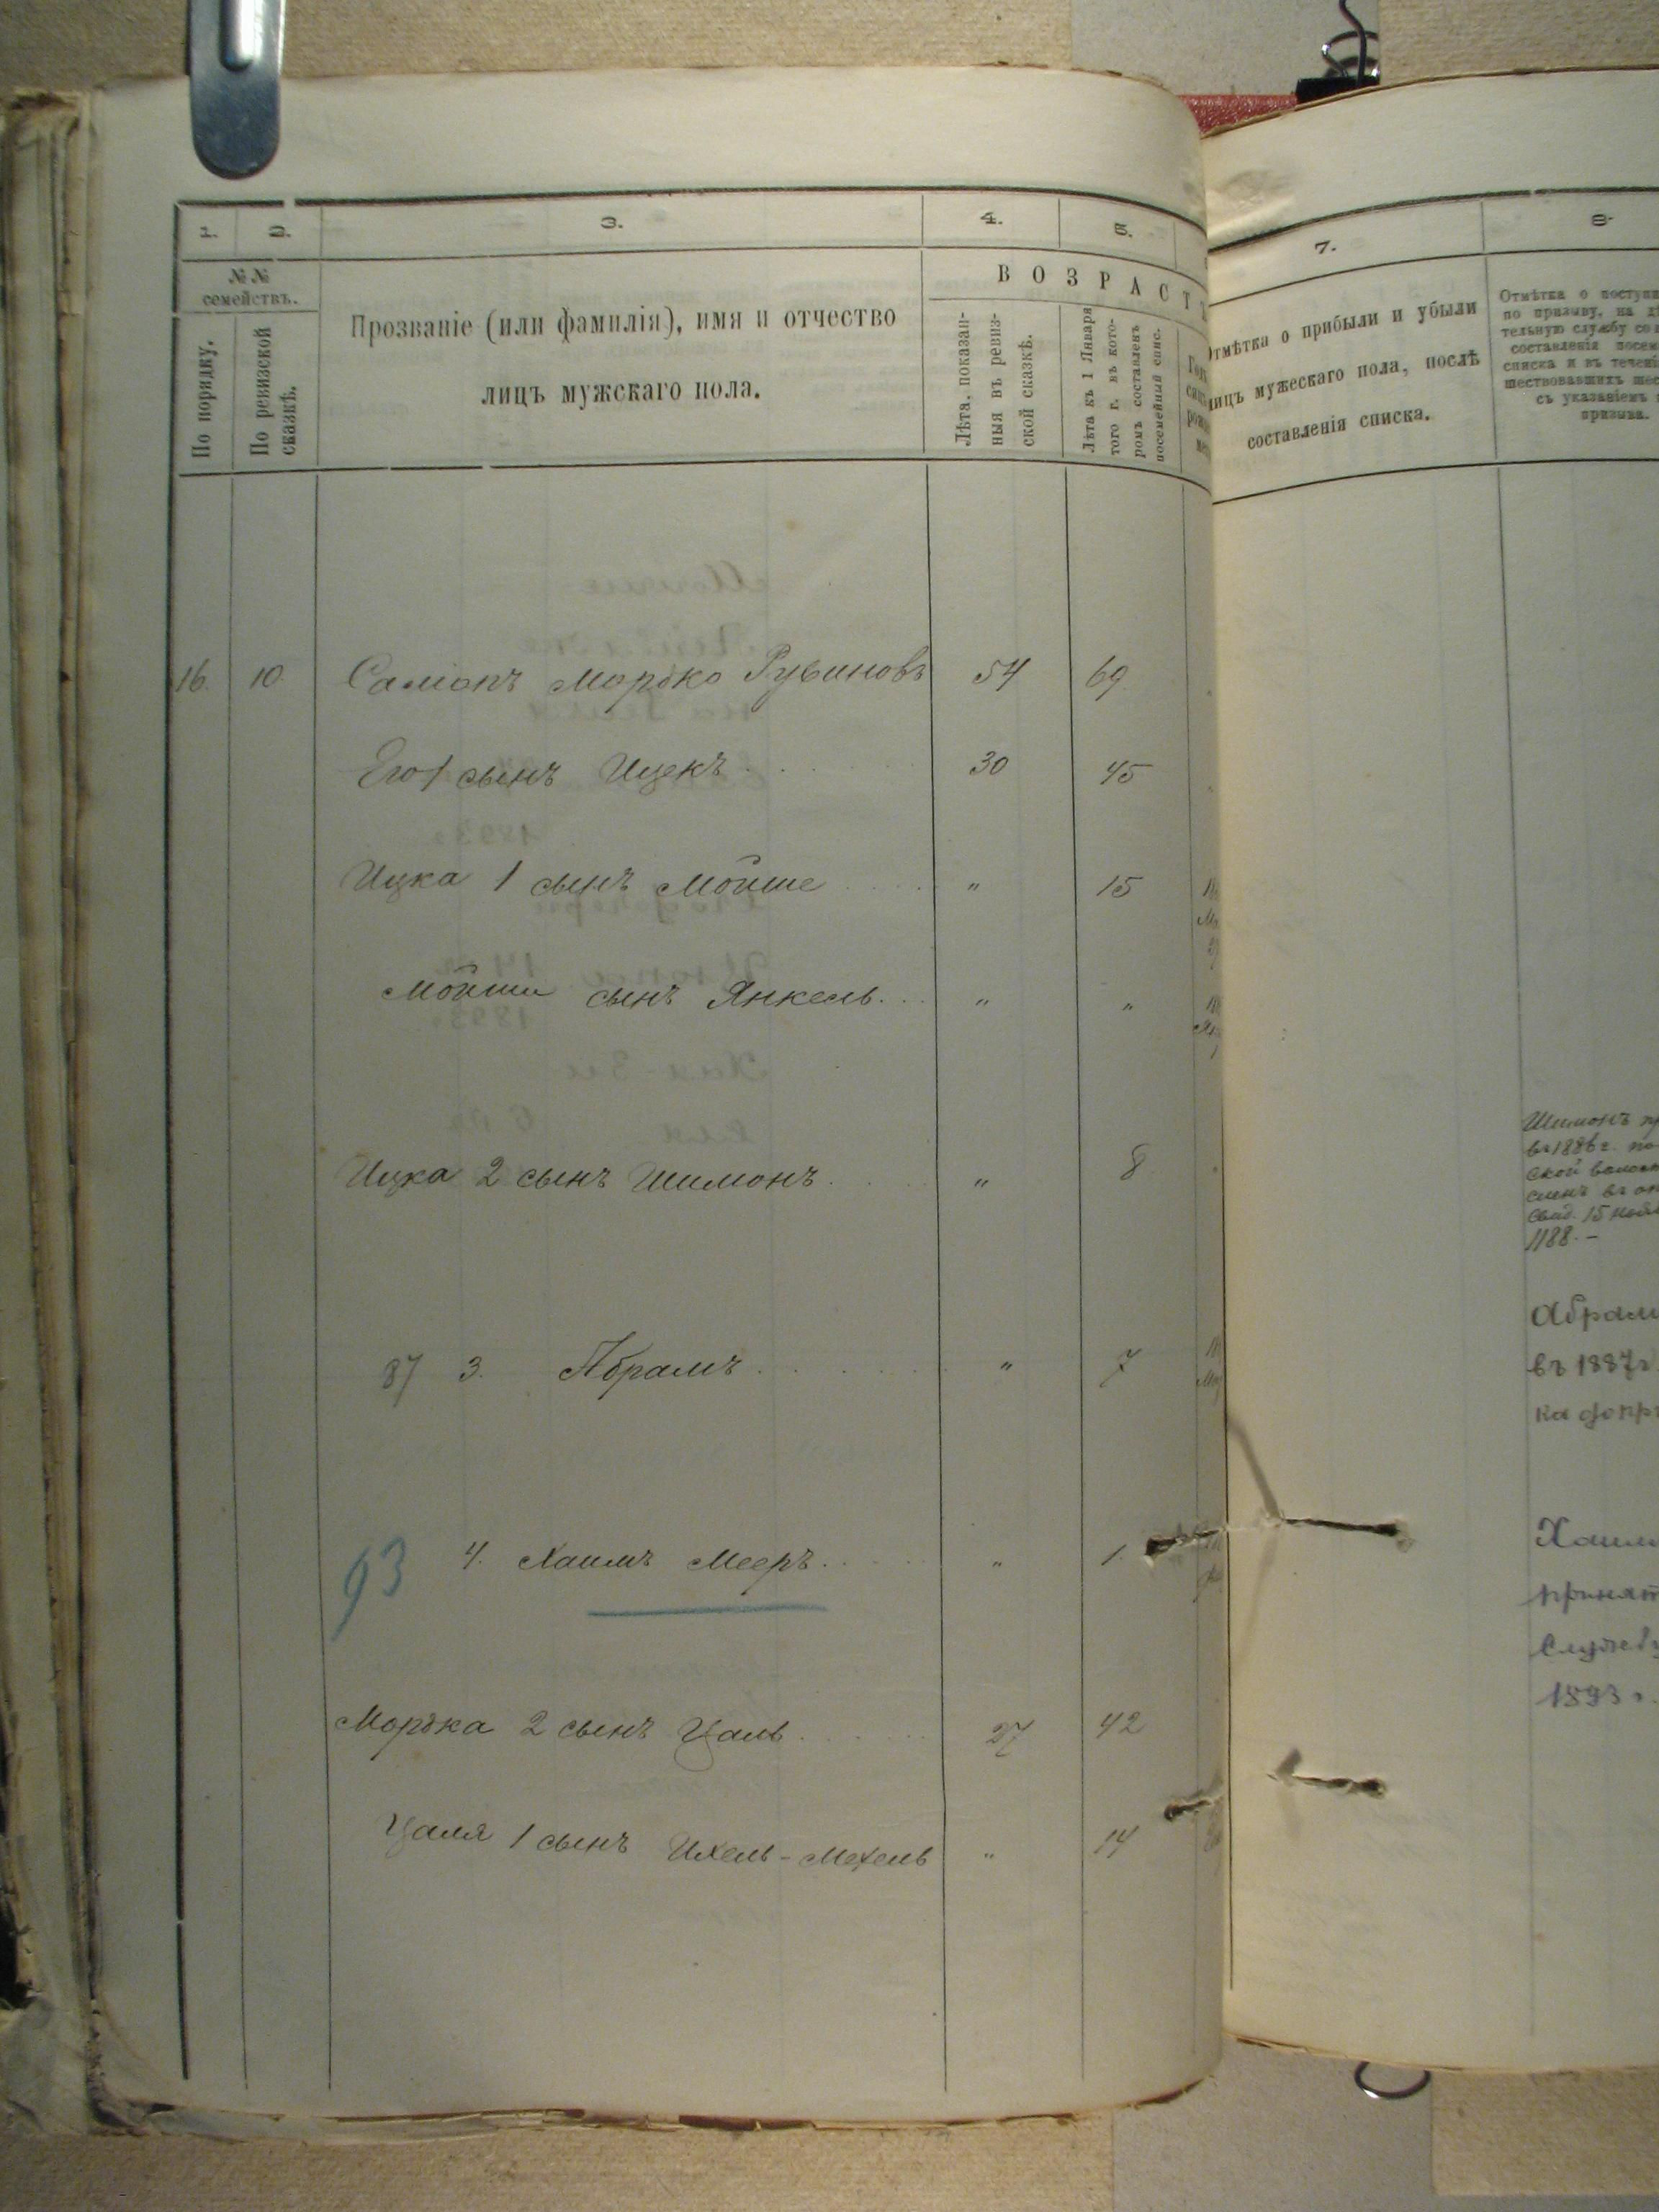 1. 2. 3. 4. 5.
№ № семействъ.
По порядку.
По ревизской сказкѣ.
Прозваніе (или фамилія), имя и отчество
лицъ мужскаго пола.
ВОЗРАСТ
Лѣта, показан-
ныя въ ревиз-
ской сказкѣ.
Лѣта къ 1 Января
того г. въ кото-
ромъ составленъ
посемейный спис.
16. 10. Мордко Рубиновъ 54 69
Его 1 сынъ Ицекъ 30 45
Ицка 1 сынъ Мойше " 15
Мойши сынъ Янкель " "
Ицка 2 сынъ Шимонъ " 8
87 3. Абрамъ " 7
93 4. Хаимъ Мееръ " 1.
Мордка 2 сынъ Цаль 27 42
Цаля 1 сынъ Ихель-Мехель " 14
7. 8.
Отмѣтка о прибыли и убыли
лицъ мужескаго пола, послѣ
составленія списка.
Отмѣтка о
по призыву, на
тельную службу со
составленія
списка и въ
шествовавшихъ
съ указаніемъ
призыва.
Шимонъ
въ 1886 г.
ской
въ
15
1188. –
Абрам
въ 1887 г
ка
Хаим
принят
служб
1893 г.